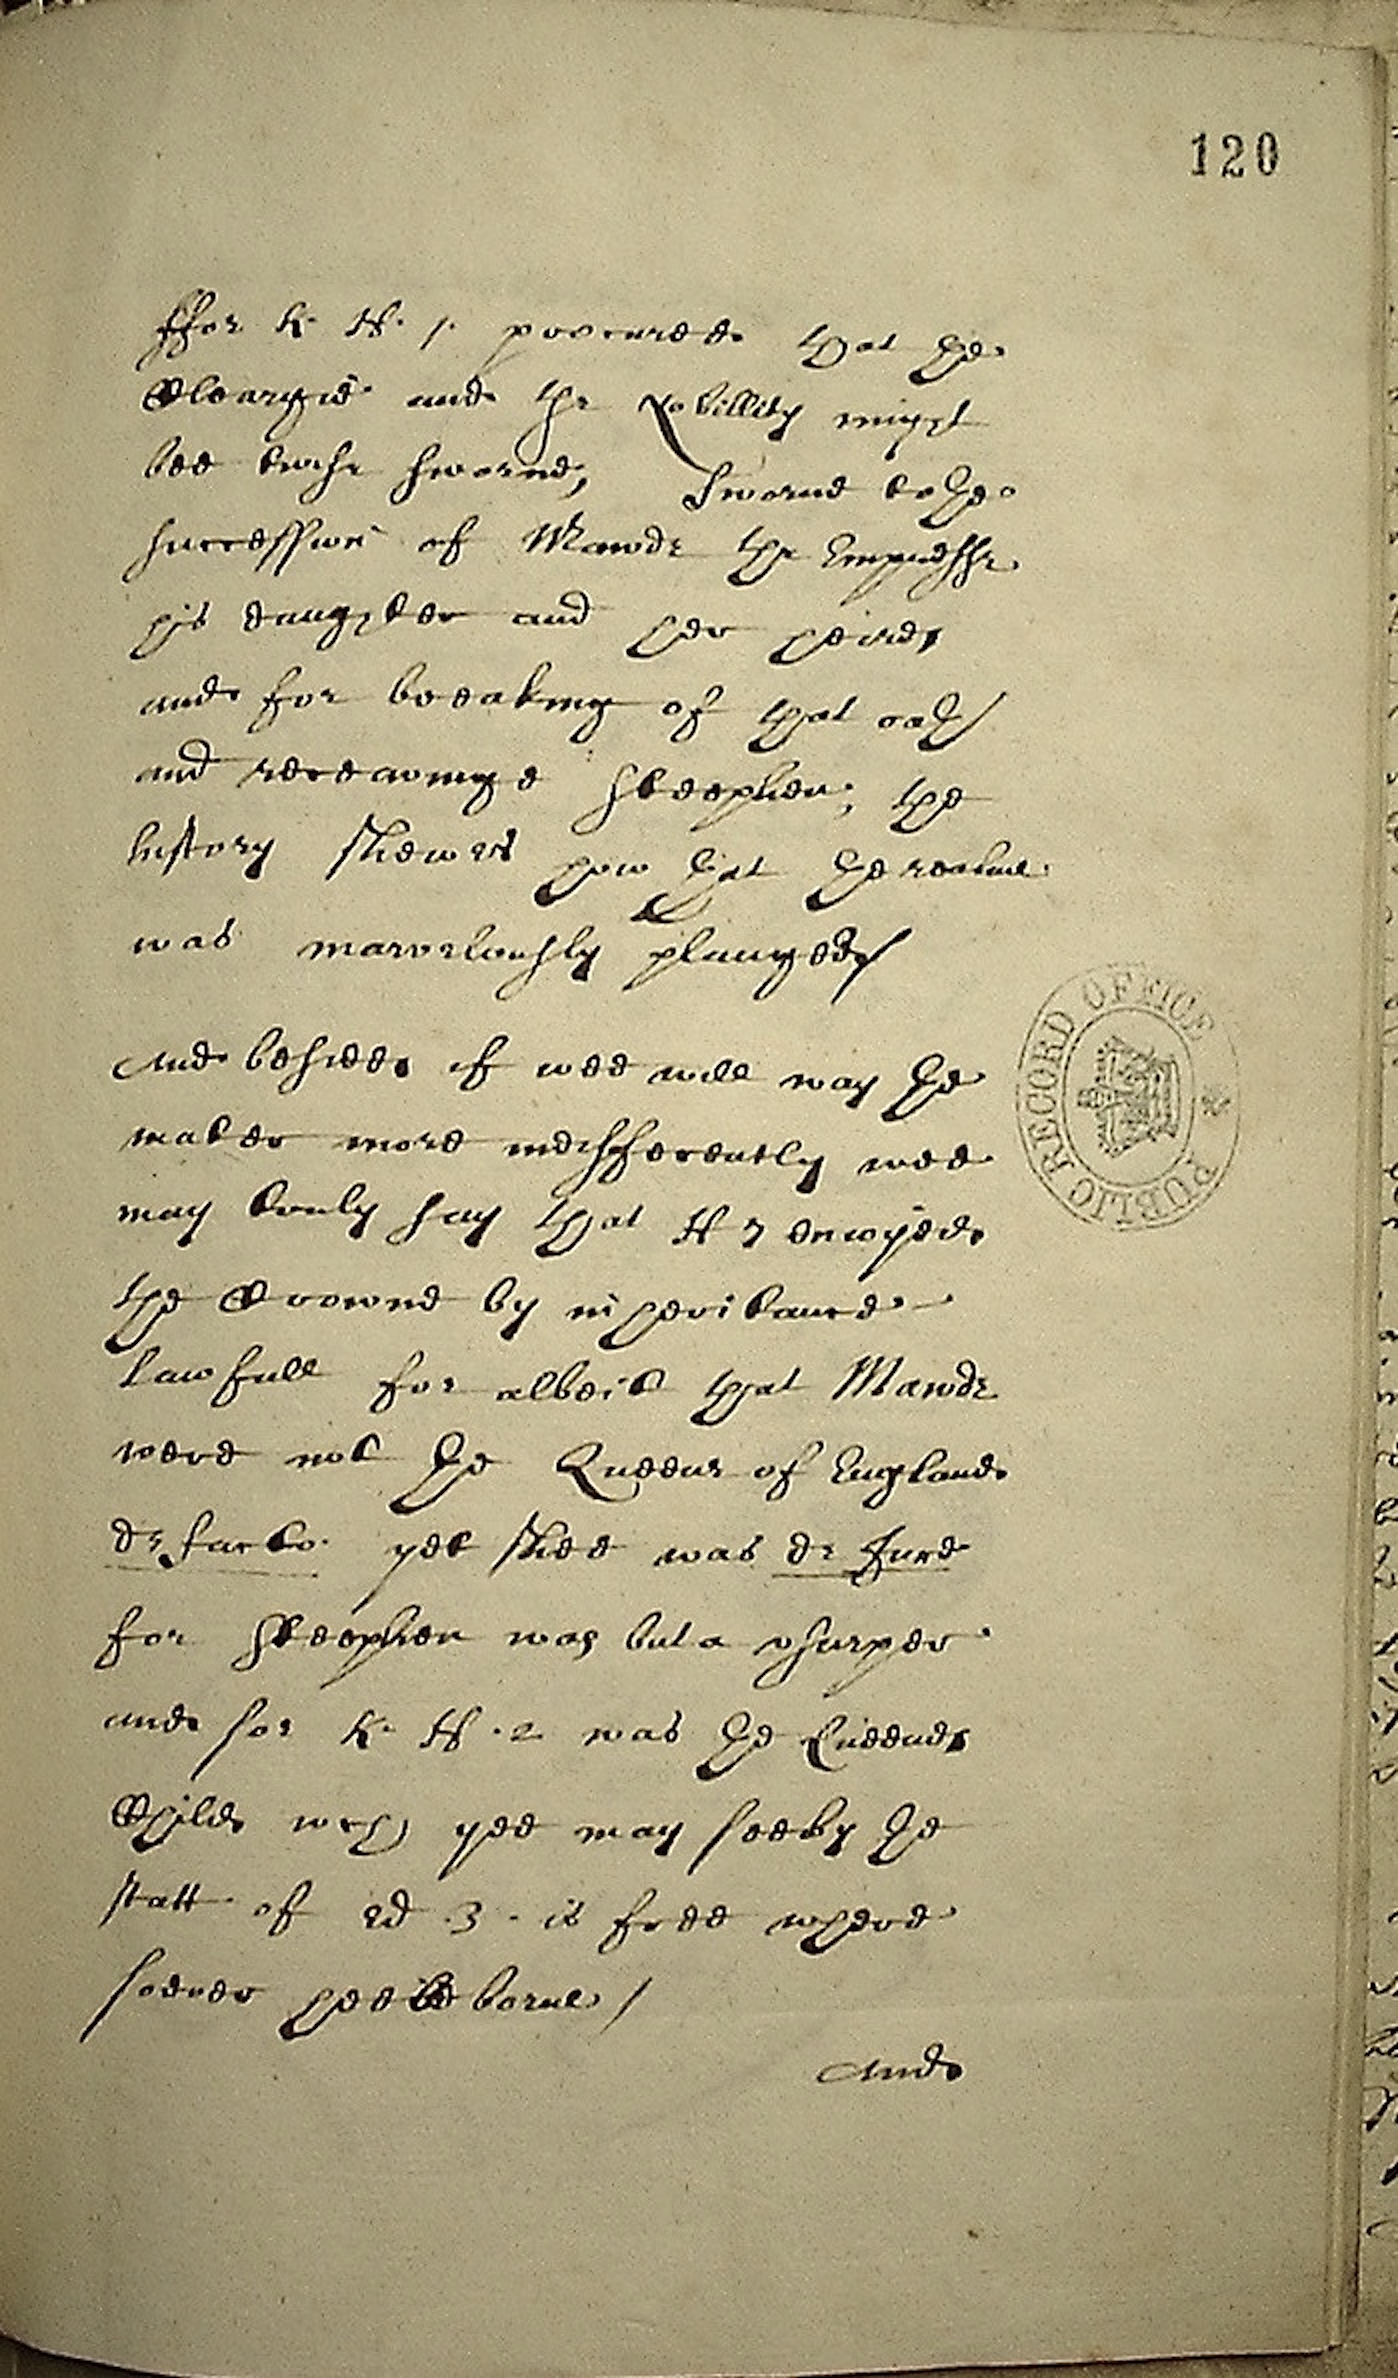 120
ffor K. H. 1. procured that the
Cleargie and the Nobillity might
bee twise sworne, Sworne to the
succession of Mawde the Empresse
his daughter and her heires
and for breaking of that oath
and receavinge Steephen, the
history shewes how that the realme
was marvelously plauged /
And besides if wee will way the
mater more indifferently wee
may truly say that H 2 enioyed
the Crowne by inheritance
lawfull for albeit that Mawde
were not the Queene of England
de facto yet shee was de Jure
for Steephen was but a vsurper
and for K. H. 2 was the Queenes
Child wch yee may see by the
statt of Ed. 3. is free where
soever hee be borne /
And
PUBLIC RECORD OFFICE